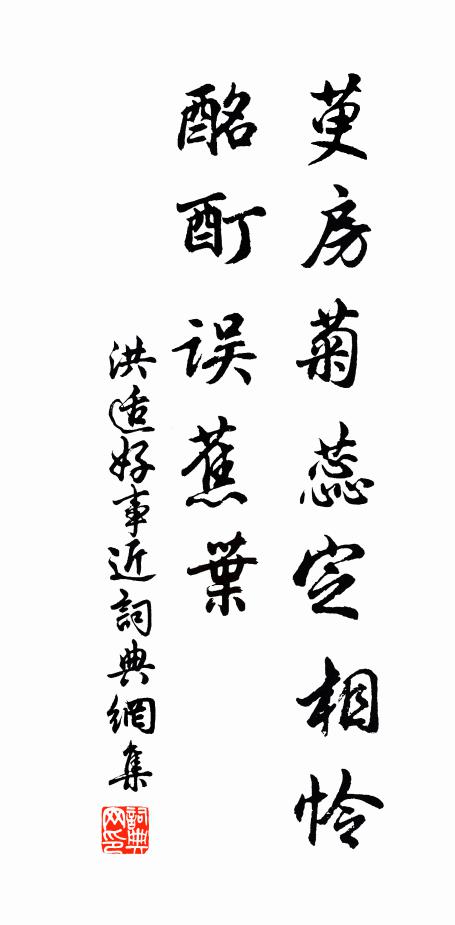 萸房菊蕊定相怜
酩酊误蕉葉
洪适好事近詞典網集
詞典网印